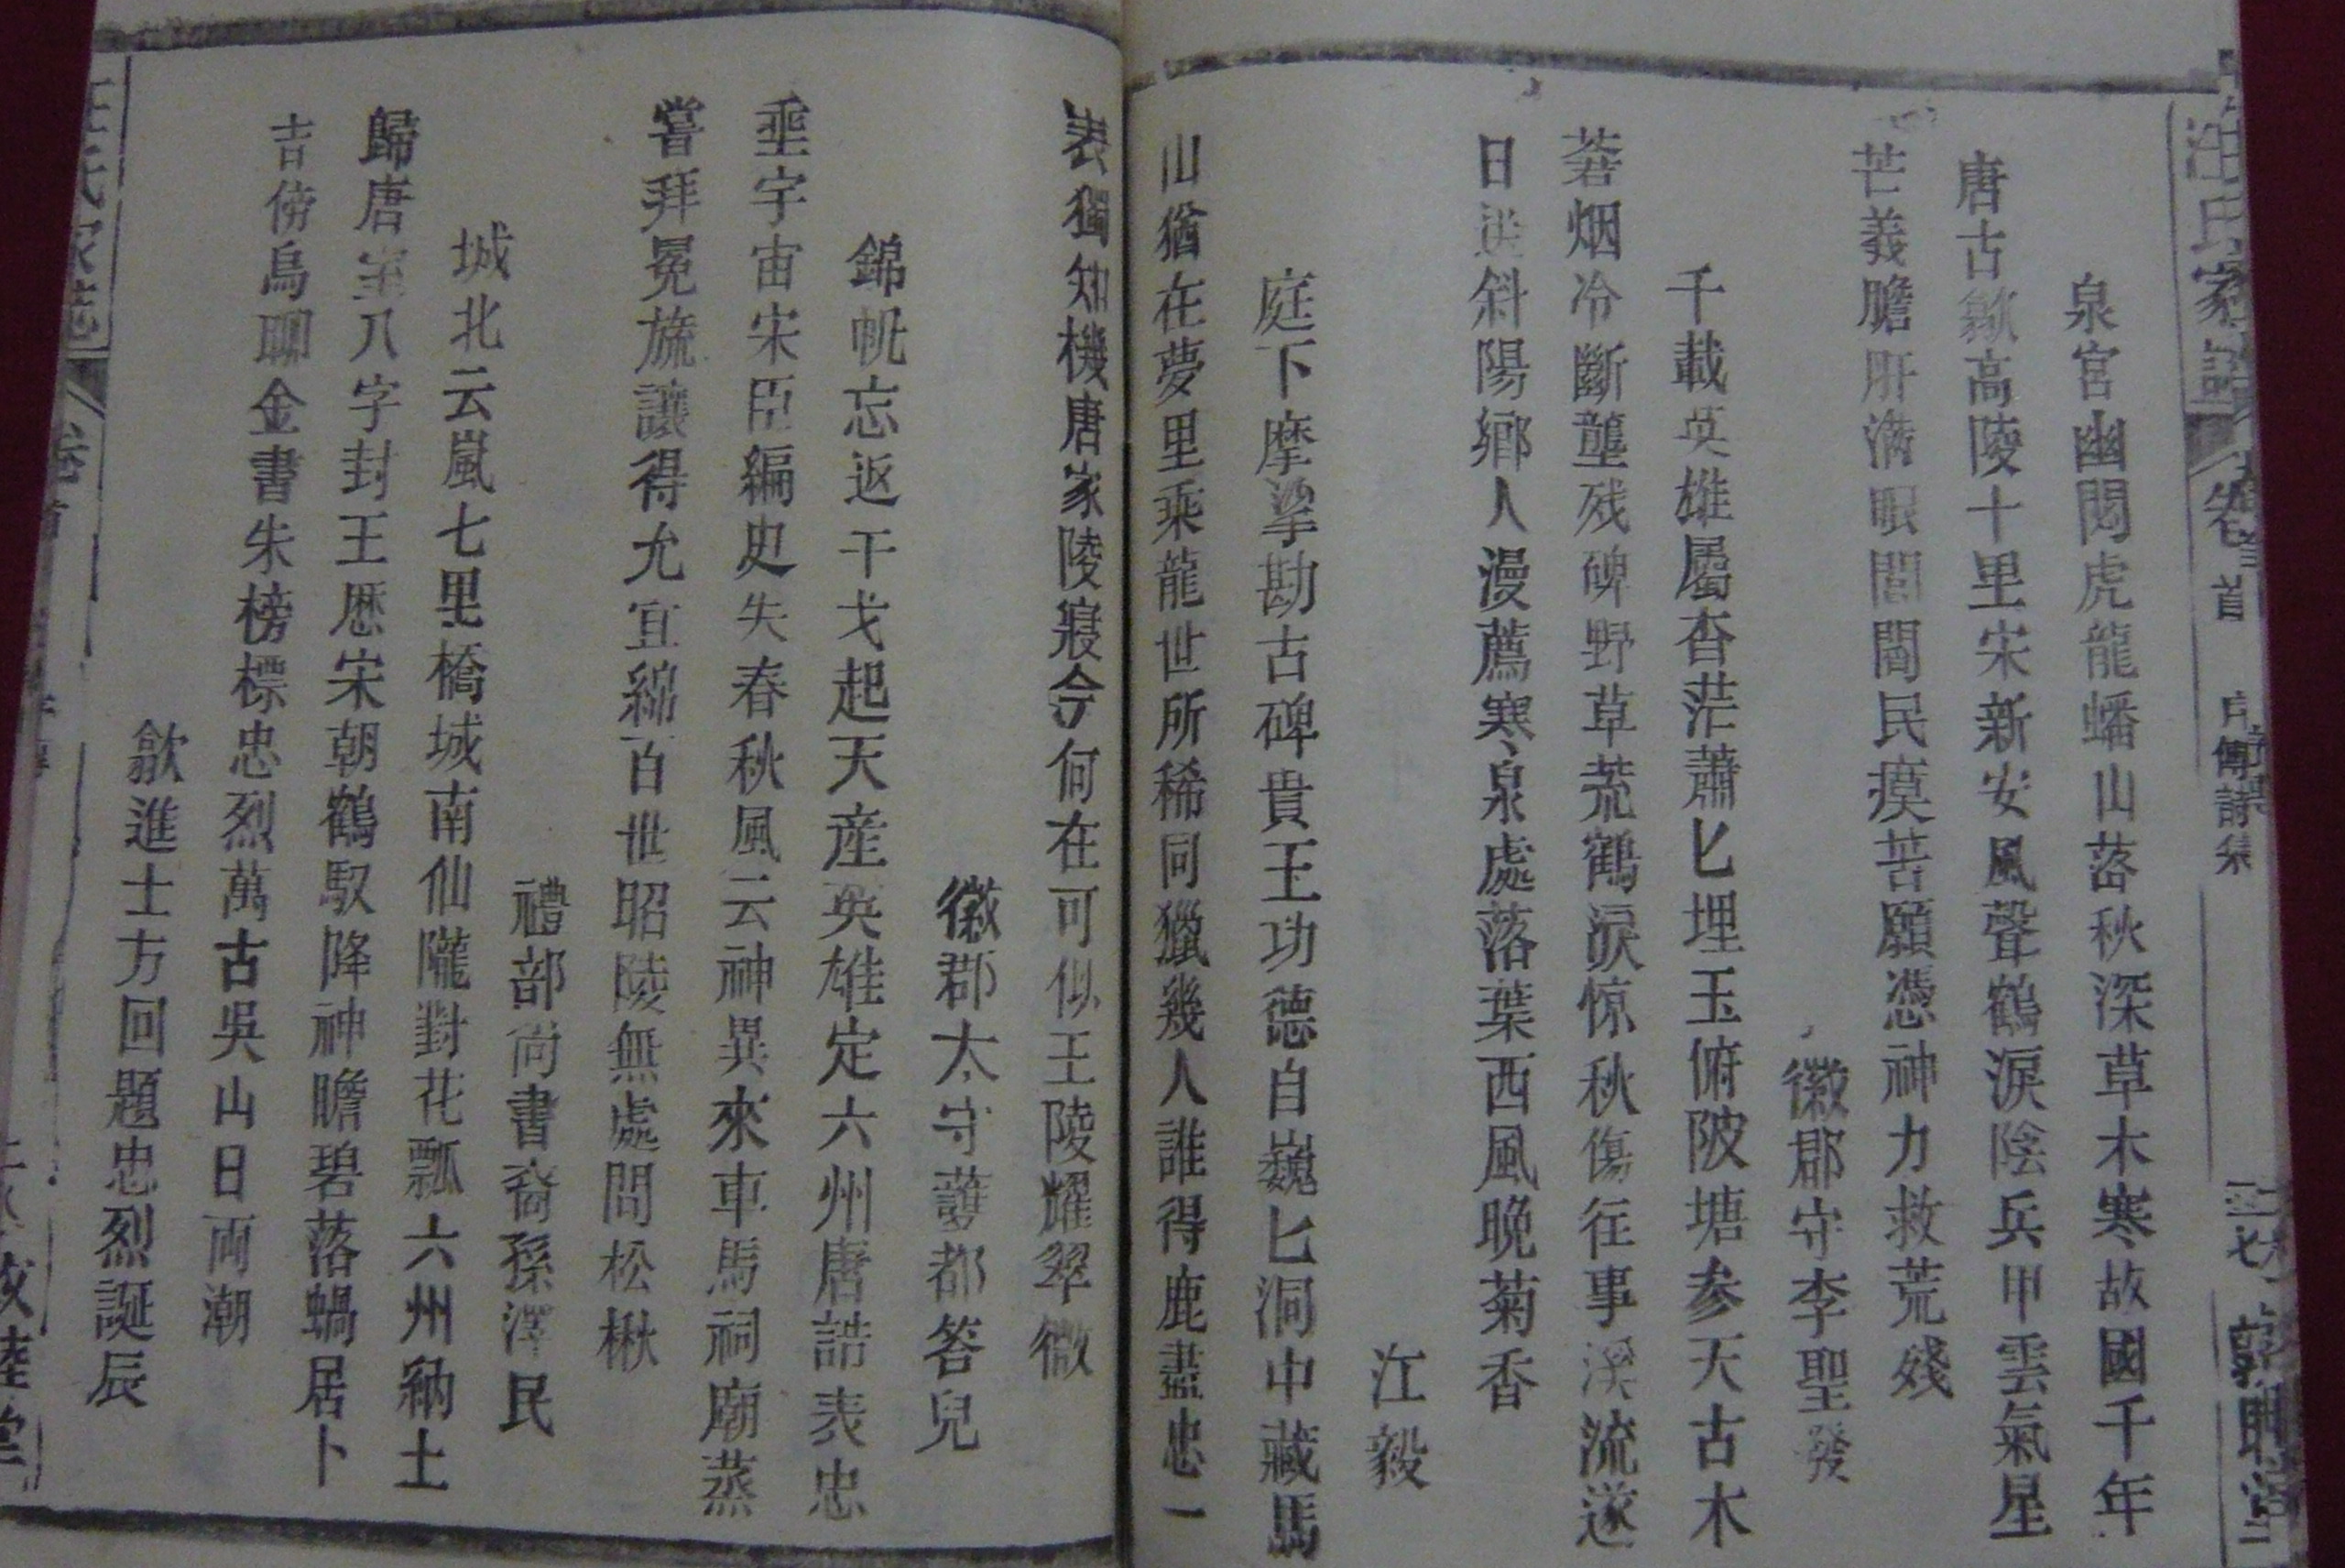 汪氏家譜 卷首 序傳詩集
泉宮幽閟虎龍蟠山落秋深草木寒故國千年
唐古歙高陵十里宋新安風聲鶴淚陰兵甲雲氣星
芒義膽肝滿眼閭閻民瘼苦願憑神力救荒殘
徽郡守李聖發
千載英雄屬杳茫蕭匕埋玉俯陂塘参天古木
蒼烟冷斷壟残碑野草荒鶴淚惊秋傷往事溪流遂
日送斜陽鄉人漫薦寒泉處落葉西風晚菊香
江毅
庭下摩挲勘古碑貴王功德自巍匕洞中藏馬
山猶在夢里乘龍世所稀同獵幾人誰得鹿盡忠一
表獨知機唐家陵寢今何在可似王陵耀翠微
徽郡太守護都答兒
錦帆忘返干戈起天産英雄定六州唐誥表忠
垂宇宙宋臣編史失春秋風云神異來車馬祠廟蒸
嘗拜冕旒讓得允宜綿百世昭陵無處問松楸
禮部尚書裔孫澤民
城北云嵐七里橋城南仙隴對花瓢六州納土
歸唐室八字封王歷宋朝鶴馭降神瞻碧落蝸居卜
吉傍烏聊金書朱榜標忠烈萬古吳山日両潮
歙進士方回題忠烈誕辰